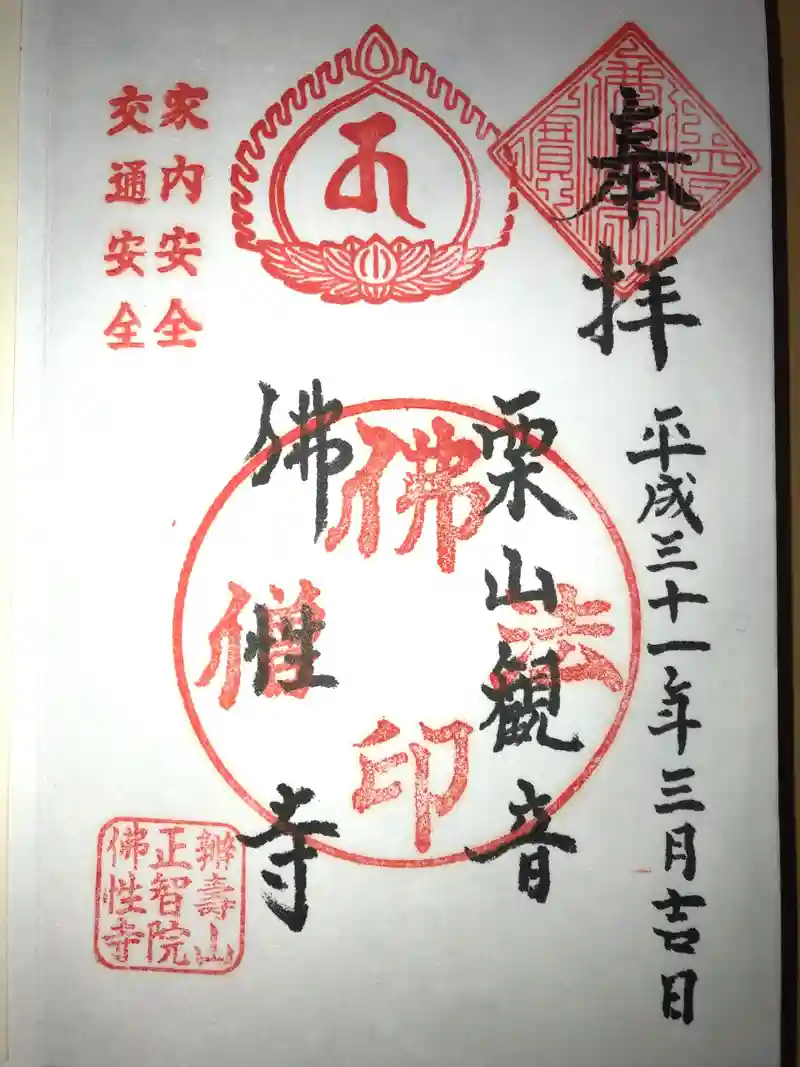 奉拝
平成三十一年三月吉日
栗山観音
佛性寺
佛法僧印
家内安全
交通安全
辨壽山
正智院
佛性寺